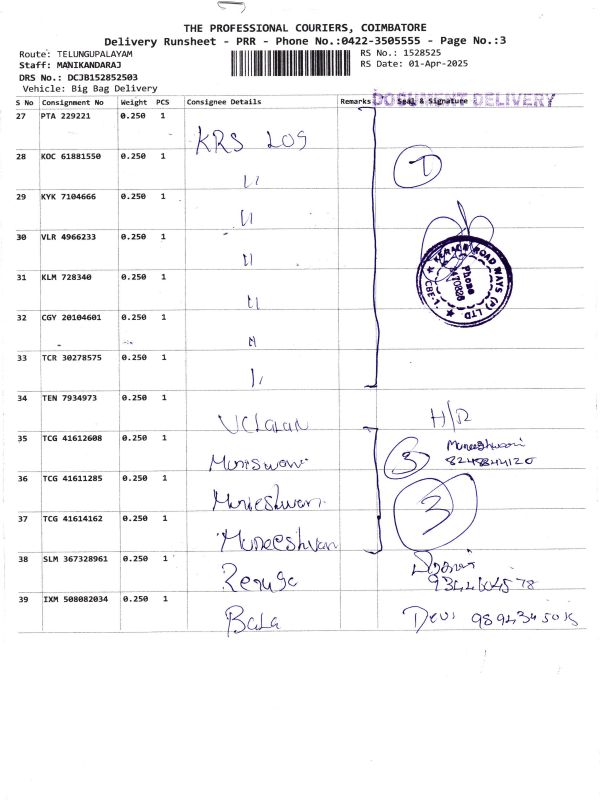 THE PROFESSIONAL COURIERS, COIMBATORE
Delivery Runsheet - PRR - Phone No.:0422-3505555 - Page No.:3
Route: TELUNGUPALAYAM
RS No.: 1528525
Staff: MANIKANDARAJ
RS Date: 01-Apr-2025
DRS No.: DCJB152852503
Vehicle: Big Bag Delivery
DOCUMENT DELIVERY
S No Consignment No Weight PCS Consignee Details Remarks Seal & Signature
27 PTA 229221 0.250 1 KRS LOG
28 KOC 61881550 0.250 1 "
29 KYK 7104666 0.250 1 "
30 VLR 4966233 0.250 1 "
31 KLM 728340 0.250 1 "
ROAD WAYS (P) LTD
CBE-1.
Phone
32 CGY 20104601 0.250 1 "
33 TCR 30278575 0.250 1 "
34 TEN 7934973 0.250 1
35 TCG 41612608 0.250 1 3 Muneeshwari
8248844120
36 TCG 41611285 0.250 1 Munieshwari 3
37 TCG 41614162 0.250 1 Muneeshwari
38 SLM 367328961 0.250 1 Renuga
39 IXM 508082034 0.250 1 Bala Devi 9894345015